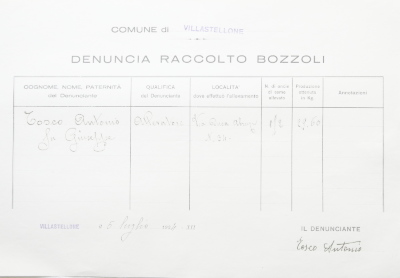 COMUNE di VILLASTELLONE
DENUNCIA RACCOLTO BOZZOLI
COGNOME NOME PATERNITÀ del Denunciante
QUALIFICA del Denunciante
LOCALITÀ dove effettuò l'allevamento
N. di oncie di seme allevato
Produzione ottenuta in Kg.
Annotazioni
Tosco Antonio
fu
1/2
29,60
VILLASTELLONE
luglio
IL DENUNCIANTE
Tosco Antonio